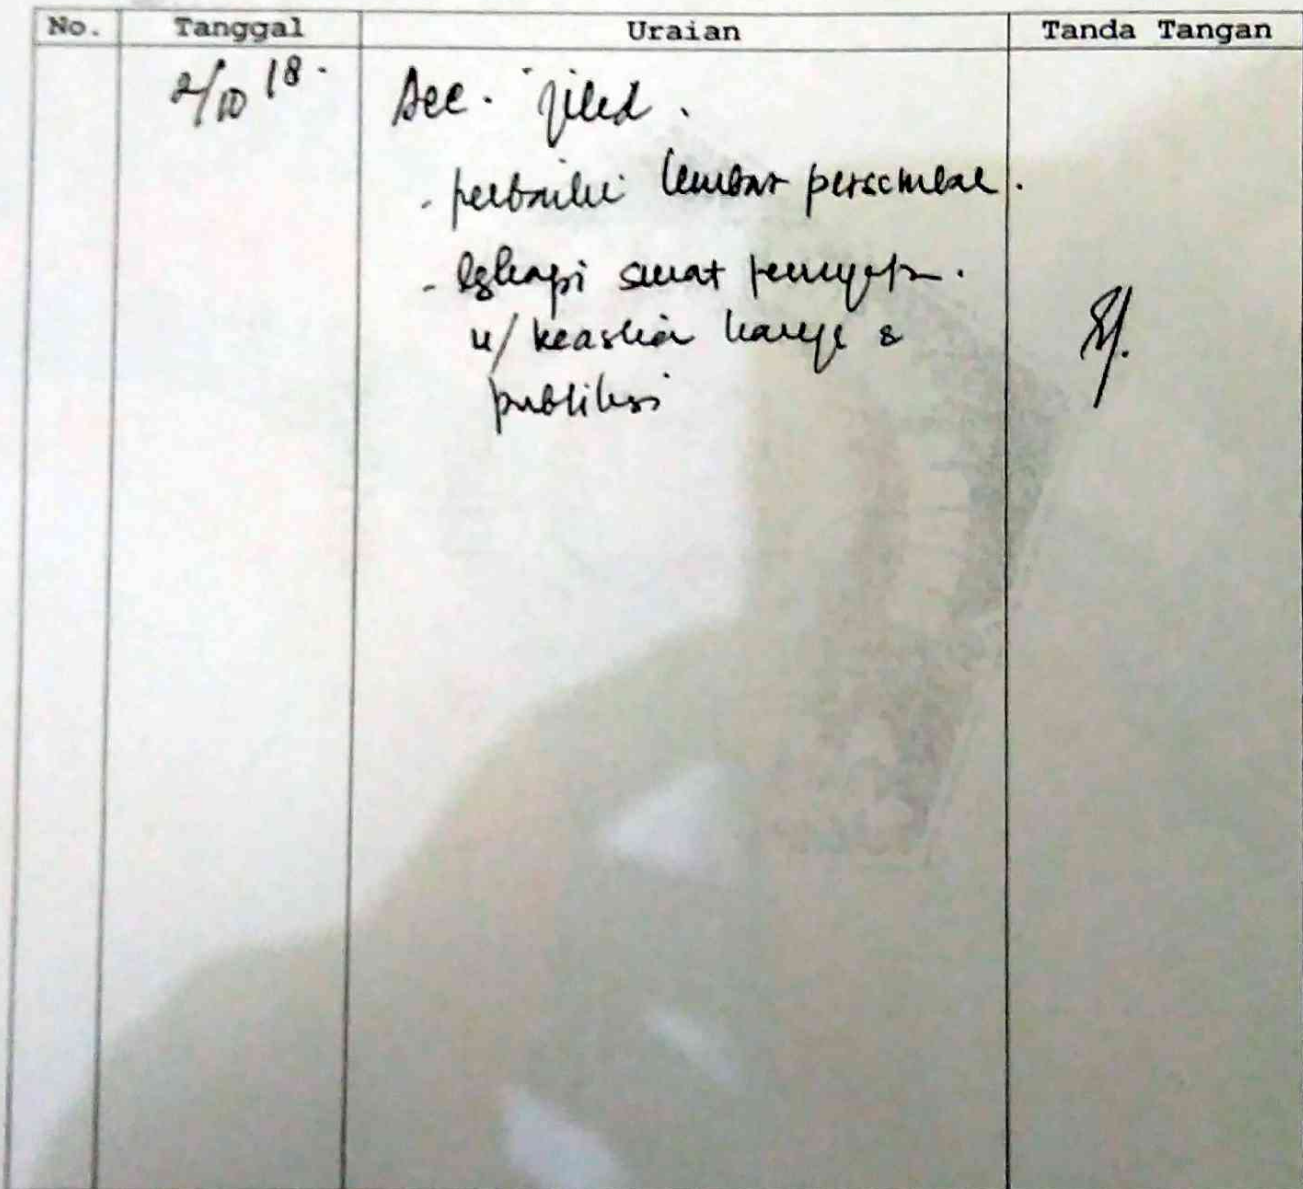 No. Tanggal Uraian Tanda Tangan
2/10 18. Acc. jilid.
- perbaiki lembar persembahan.
- lengkapi surat pernyataan.
u/ keaslian karya &
publikasi